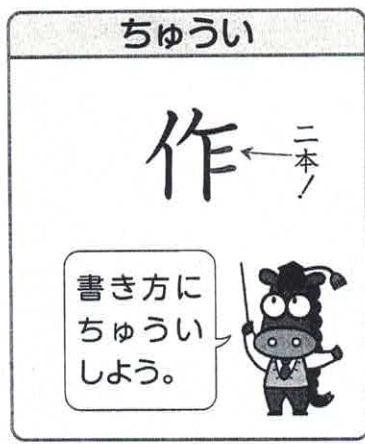 ちゅうい
作
二本!
書き方に
ちゅうい
しよう。